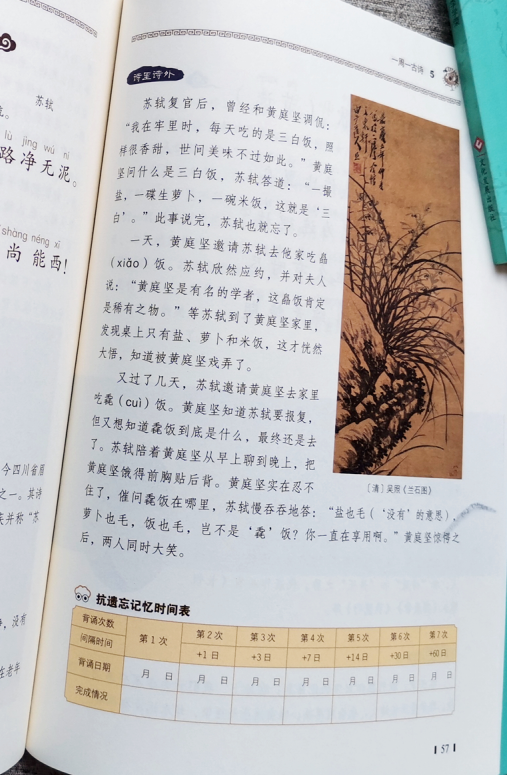 苏轼
lù jìng wú ní
路净无泥。
shàng néng xī
尚能西!
今四川省眉
之一。其诗
并称“苏
，没有
在老年
一周一古诗 5
诗里诗外
苏轼复官后，曾经和黄庭坚调侃：
“我在牢里时，每天吃的是三白饭，照
样很香甜，世间美味不过如此。”黄庭
坚问什么是三白饭，苏轼答道：“一撮
盐，一碟生萝卜，一碗米饭，这就是‘三
白’。”此事说完，苏轼也就忘了。
一天，黄庭坚邀请苏轼去他家吃皛
（xiǎo）饭。苏轼欣然应约，并对夫人
说：“黄庭坚是有名的学者，这皛饭肯定
是稀有之物。”等苏轼到了黄庭坚家里，
发现桌上只有盐、萝卜和米饭，这才恍然
大悟，知道被黄庭坚戏弄了。
又过了几天，苏轼邀请黄庭坚去家里
吃毳（cuì）饭。黄庭坚知道苏轼要报复，
但又想知道毳饭到底是什么，最终还是去
了。苏轼陪着黄庭坚从早上聊到晚上，把
黄庭坚饿得前胸贴后背。黄庭坚实在忍不
住了，催问毳饭在哪里，苏轼慢吞吞地答：“盐也毛（‘没有’的意思），
萝卜也毛，饭也毛，岂不是‘毳’饭？你一直在享用啊。”黄庭坚惊愕之
后，两人同时大笑。
［清］吴照《兰石图》
抗遗忘记忆时间表
背诵次数 第1次 第2次 第3次 第4次 第5次 第6次 第7次
间隔时间 +1日 +3日 +7日 +14日 +30日 +60日
背诵日期 月 日 月 日 月 日 月 日 月 日 月 日 月 日
完成情况
57